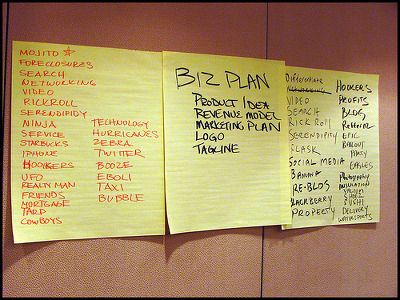 MOJITO
FORECLOSURES
SEARCH
NETWORKING
VIDEO
RICKROLL
SERENDIPITY
NINJA
SERVICE
STARBUCKS
IPHONE
HOOKERS
UFO
REALTY MAN
FRIENDS
MORTGAGE
TARD
COWBOYS
TECHNOLOGY
HURRICANES
ZEBRA
TWITTER
BOOZE
EBOLI
TAXI
BUBBLE
BIZ PLAN
PRODUCT IDEA
REVENUE MODEL
MARKETING PLAN
LOGO
TAGLINE
Differentiate
VIDEO
SEARCH
RICK ROLL
SERENDIPITY
FLASK
SOCIAL MEDIA
BANANA
RE-BLOG
BLACKBERRY
PROPERTY
HOOKERS
PROFITS
BLOG
EPIC
BAILOUT
PARTY
EAGLES
SUSHI
DELIVERY
WATERSPORTS